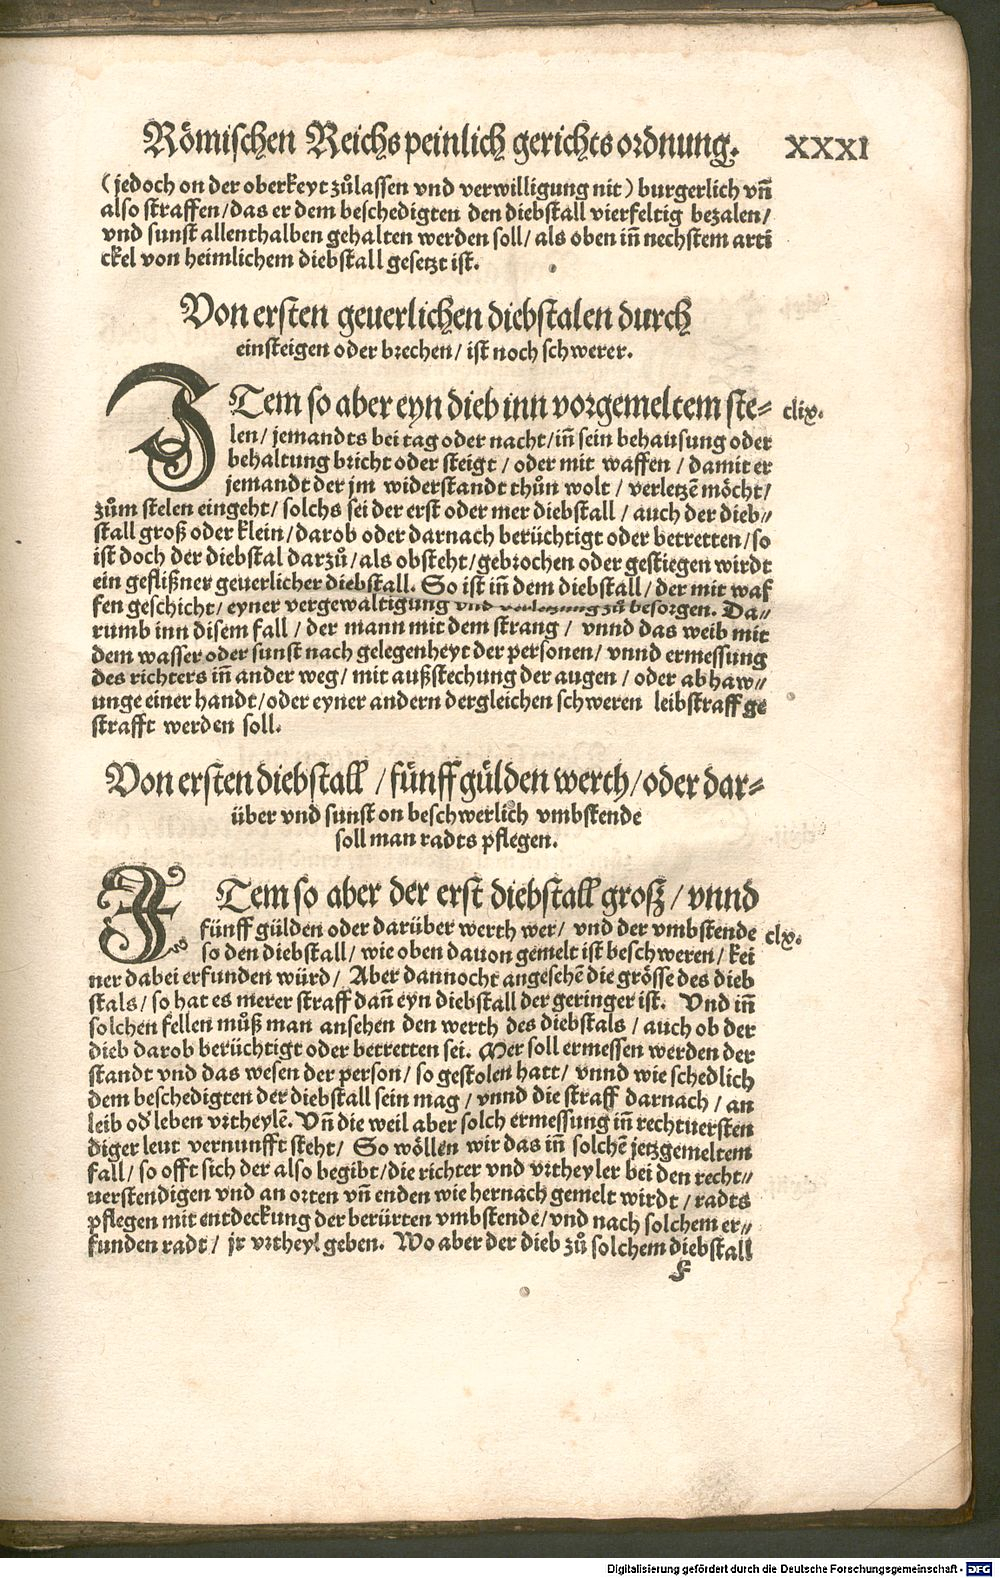 Römischen Reichs peinlich gerichts ordnung. XXXI
(jedoch on der oberkeyt zůlassen vnd verwilligung nit) burgerlich vñ
also straffen/das er dem beschedigten den diebstall vierfeltig bezalen/
vnd sunst allenthalben gehalten werden soll/als oben iñ nechstem arti
ckel von heimlichem diebstall gesetzt ist.
Von ersten geuerlichen diebstalen durch
einsteigen oder brechen/ist noch schwerer.
ITem so aber eyn dieb inn vorgemeltem ste= clix.
len/jemandts bei tag oder nacht/iñ sein behausung oder
behaltung bricht oder steigt/oder mit waffen/damit er
jemandt der jm widerstandt thůn wolt/verletzẽ möcht/
zům stelen eingeht/solchs sei der erst oder mer diebstall/auch der dieb=
stall groß oder klein/darob oder darnach berüchtigt oder betretten/so
ist doch der diebstal darzů/als obsteht/gebrochen oder gestiegen wirdt
ein geflißner geuerlicher diebstall. So ist iñ dem diebstall/der mit waf
fen geschicht/eyner vergewaltigung vnd verletzung zů besorgen. Da=
rumb inn disem fall/der mann mit dem strang/vnnd das weib mit
dem wasser oder sunst nach gelegenheyt der personen/vnnd ermessung
des richters iñ ander weg/mit außstechung der augen/oder abhaw=
unge einer handt/oder eyner andern dergleichen schweren leibstraff ge
strafft werden soll.
Von ersten diebstall/fünff gülden werth/oder dar=
über vnd sunst on beschwerlich vmbstende
soll man radts pflegen.
ITem so aber der erst diebstall groß/vnnd
fünff gülden oder darüber werth wer/vnd der vmbstende clx.
so den diebstall/wie oben dauon gemelt ist beschweren/kei
ner dabei erfunden würd/Aber dannocht angesehẽ die grösse des dieb
stals/so hat es merer straff dañ eyn diebstall der geringer ist. Vnd iñ
solchen fellen můß man ansehen den werth des diebstals/auch ob der
dieb darob berüchtigt oder betretten sei. Mer soll ermessen werden der
standt vnd das wesen der person/so gestolen hatt/vnnd wie schedlich
dem beschedigten der diebstall sein mag/vnnd die straff darnach/an
leib od' leben vrtheylẽ. Vñ die weil aber solch ermessung iñ rechtuersten
diger leut vernunfft steht/So wöllen wir das iñ solchẽ jetzgemeltem
fall/so offt sich der also begibt/die richter vnd vrtheyler bei den recht=
uerstendigen vnd an orten vñ enden wie hernach gemelt wirdt/radts
pflegen mit entdeckung der berürten vmbstende/vnd nach solchem er=
funden radt/jr vrtheyl geben. Wo aber der dieb zů solchem diebstall
F
Digitalisierung gefördert durch die Deutsche Forschungsgemeinschaft - DFG